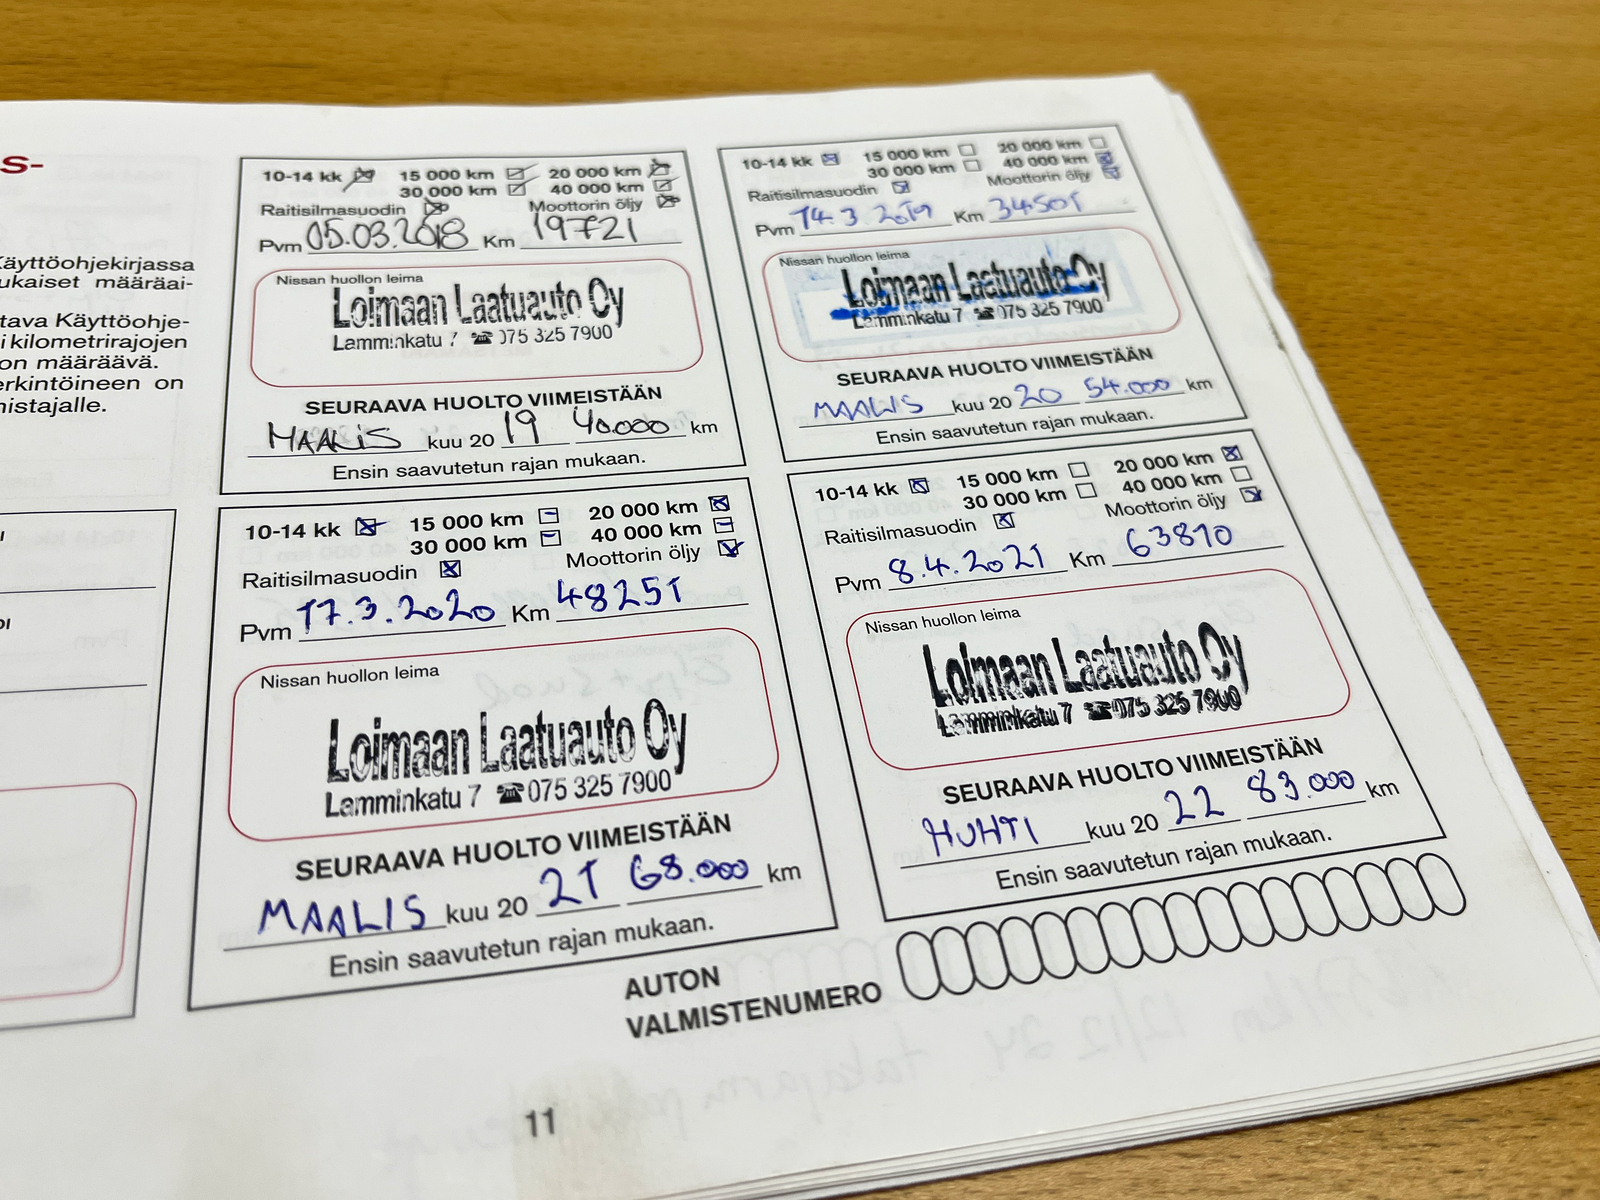 s-
Käyttöohjekirjassa
ukaiset määräai-
tava Käyttöohje-
i kilometrirajojen
on määräävä.
erkintöineen on
nistajalle.
10-14 kk 15 000 km 20 000 km
30 000 km 40 000 km
Raitisilmasuodin Moottorin öljy
Pvm 05.03.2018 Km 19721
Nissan huollon leima
Loimaan Laatuauto Oy
Lamminkatu 7 ☎ 075 325 7900
SEURAAVA HUOLTO VIIMEISTÄÄN
MAALIS kuu 20 19 40.000 km
Ensin saavutetun rajan mukaan.
10-14 kk 15 000 km 20 000 km
30 000 km 40 000 km
Raitisilmasuodin Moottorin öljy
Pvm 14.3.2019 Km 34501
Nissan huollon leima
Loimaan Laatuauto Oy
Lamminkatu 7 ☎ 075 325 7900
SEURAAVA HUOLTO VIIMEISTÄÄN
MAALIS kuu 20 20 54.000 km
Ensin saavutetun rajan mukaan.
10-14 kk 15 000 km 20 000 km
30 000 km 40 000 km
Raitisilmasuodin Moottorin öljy
Pvm 17.3.2020 Km 48251
Nissan huollon leima
Loimaan Laatuauto Oy
Lamminkatu 7 ☎ 075 325 7900
SEURAAVA HUOLTO VIIMEISTÄÄN
MAALIS kuu 20 21 68.000 km
Ensin saavutetun rajan mukaan.
10-14 kk 15 000 km 20 000 km
30 000 km 40 000 km
Raitisilmasuodin Moottorin öljy
Pvm 8.4.2021 Km 63810
Nissan huollon leima
Loimaan Laatuauto Oy
Lamminkatu 7 ☎ 075 325 7900
SEURAAVA HUOLTO VIIMEISTÄÄN
HUHTI kuu 20 22 83.000 km
Ensin saavutetun rajan mukaan.
AUTON
VALMISTENUMERO
11